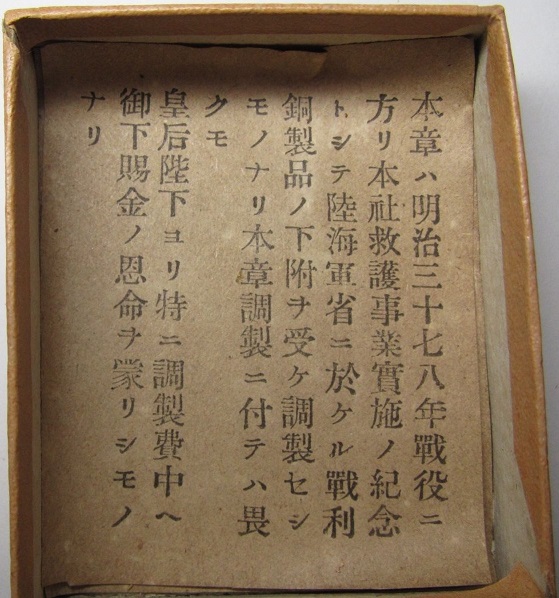 本章ハ明治三十七八年戰役ニ
方リ本社救護事業實施ノ紀念
トシテ陸海軍省ニ於ケル戰利
銅製品ノ下附ヲ受ケ調製セシ
モノナリ本章調製ニ付テハ畏
クモ
皇后陛下ヨリ特ニ調製費中ヘ
御下賜金ノ恩命ヲ蒙リシモノ
ナリ